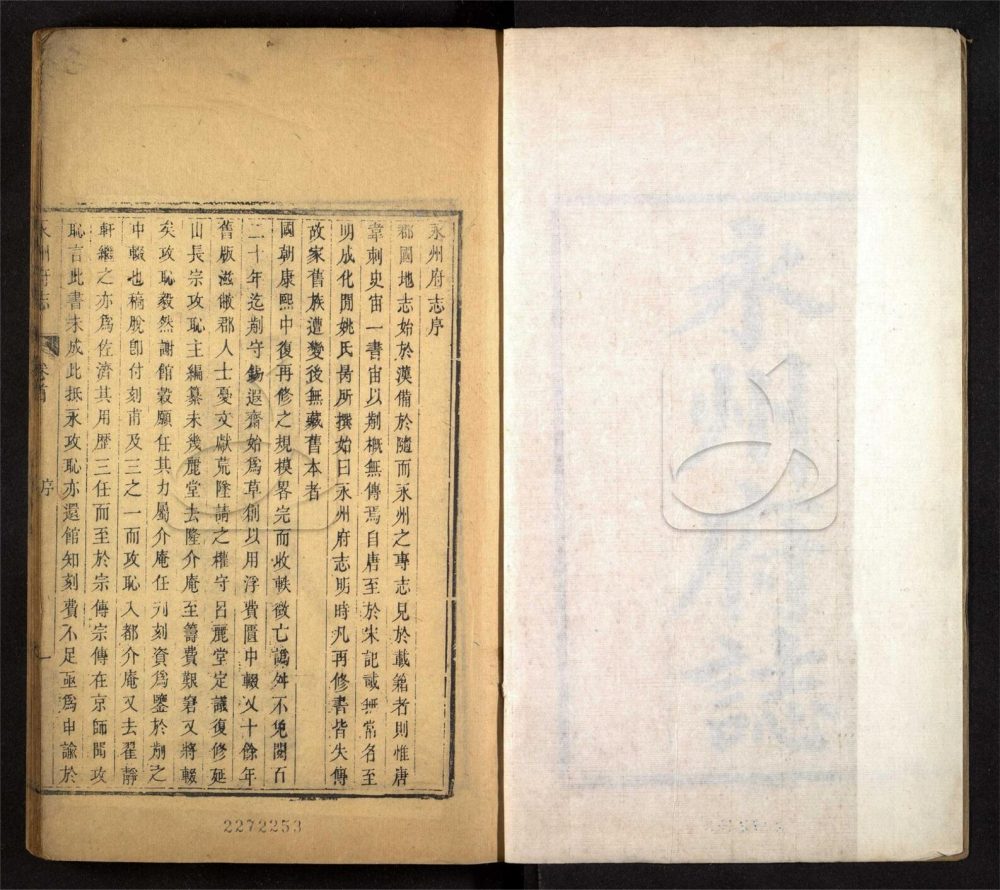 永州府志序
郡國地志始於漢備於隨而永州之專志見於載籍者則惟唐
韋刺史宙一書宙以剏概無傳焉自唐至於宋記載無常名至
明成化間姚氏昺所撰始曰永州府志明時凡再修書皆失傳
故家舊族遭變後無藏舊本者
國朝康熙中復再修之規模畧完而收軼徵亡譌舛不免閱百
二十年迄前守錫遐齋始爲草創以用浮費匱中輟又十餘年
舊版滋敝郡人士憂文獻荒墜請之權守呂麗堂定議復修延
山長宗攻恥主編纂未幾麗堂去隆介庵至籌費艱窘又將輟
矣攻恥毅然謝館穀願任其力屬介庵任刋刻資爲鑒於前之
中輟也稿脫卽付刻甫及三之一而攻恥入都介庵又去翟靜
軒繼之亦爲佐濟其用歷三任而至於宗傳宗傳在京師聞攻
恥言此書未成此抵永攻恥亦還館知刻費不足亟爲申諭於
永州府志 卷首 序 一
2272253
永州府誌